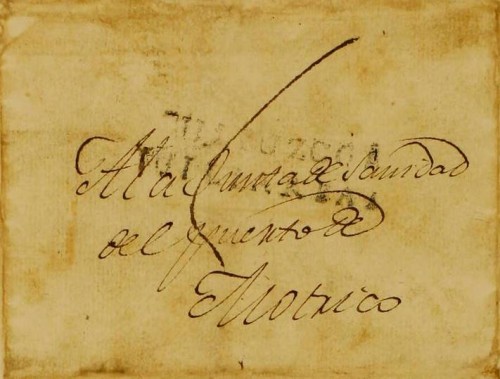 A la Junta de Sanidad
del puerto de
Motrico